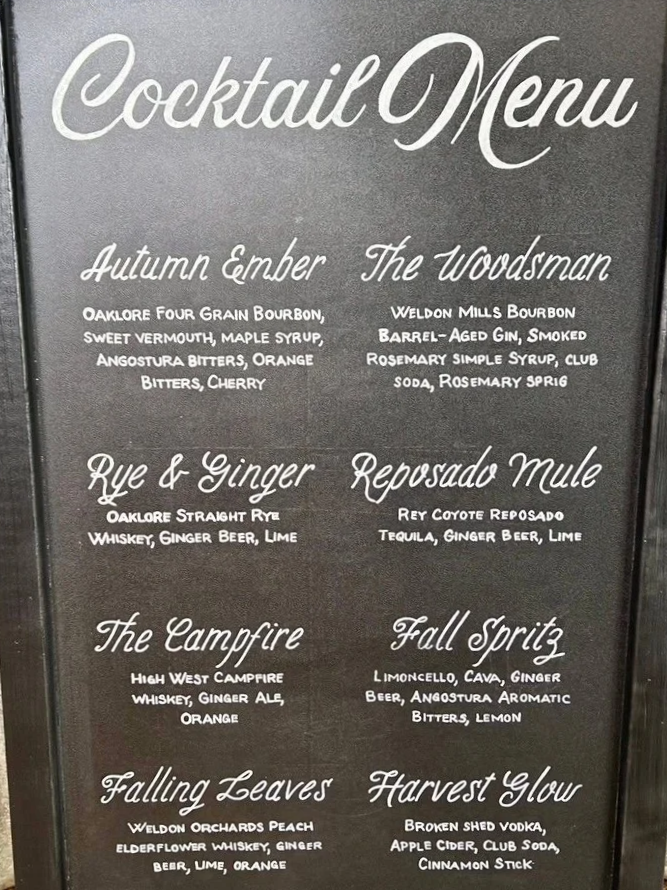 Cocktail Menu
Autumn Ember
Oaklore Four Grain Bourbon,
sweet vermouth, maple syrup,
Angostura bitters, Orange
Bitters, Cherry
The Woodsman
Weldon Mills Bourbon
Barrel-Aged Gin, Smoked
Rosemary simple Syrup, club
soda, Rosemary sprig
Rye & Ginger
Oaklore Straight Rye
Whiskey, Ginger Beer, Lime
Reposado Mule
Rey Coyote Reposado
Tequila, Ginger Beer, Lime
The Campfire
High West Campfire
whiskey, Ginger Ale,
Orange
Fall Spritz
Limoncello, Cava, Ginger
Beer, Angostura Aromatic
Bitters, lemon
Falling Leaves
Weldon Orchards Peach
elderflower whiskey, ginger
beer, lime, orange
Harvest Glow
Broken shed vodka,
Apple Cider, Club Soda,
Cinnamon Stick